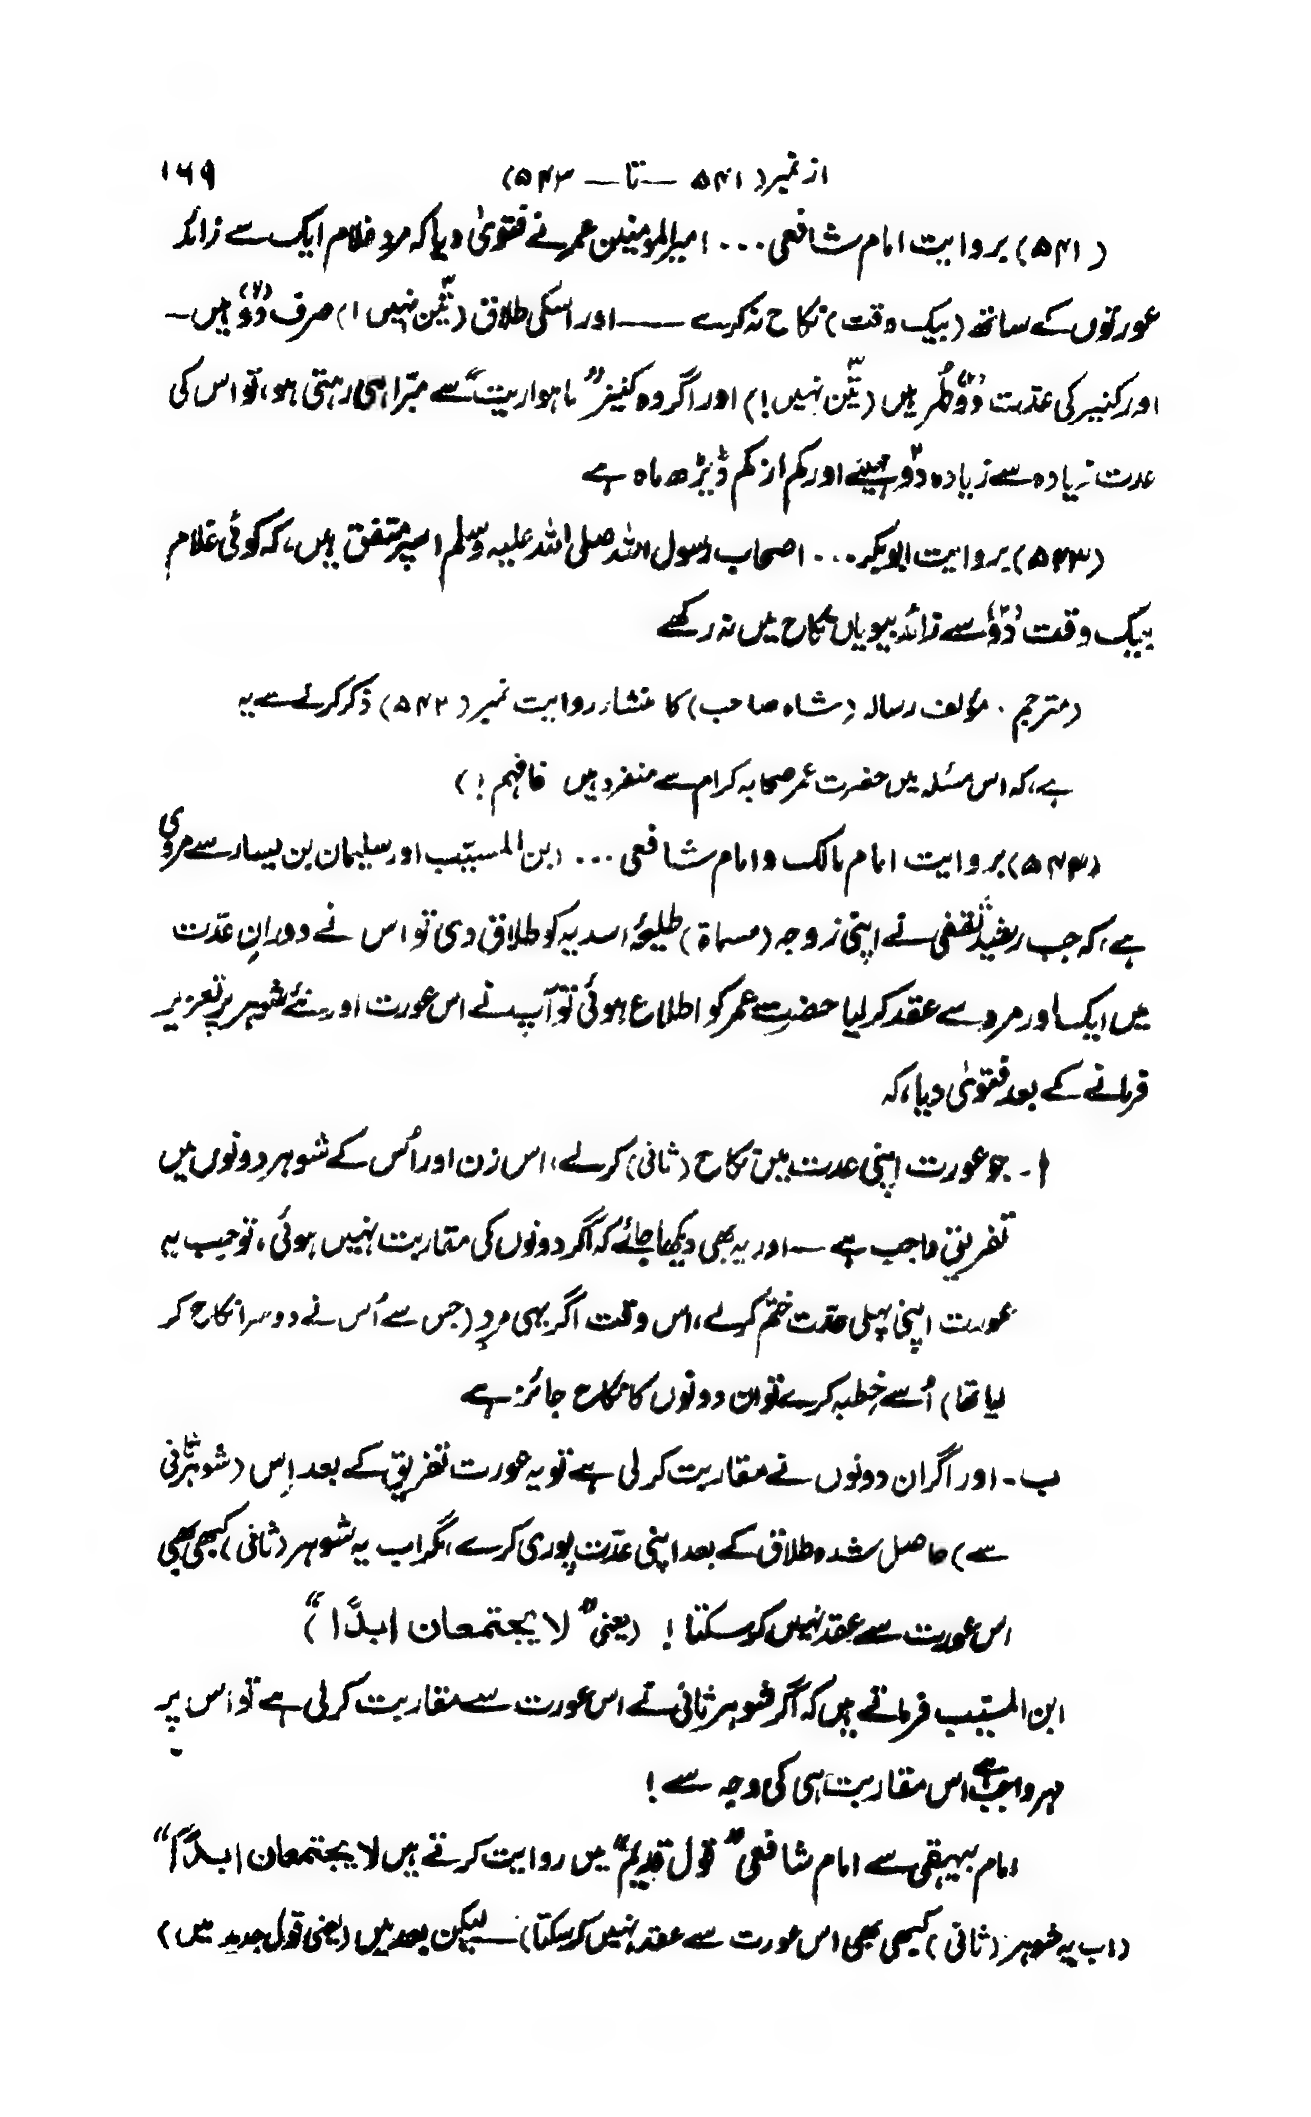 از نمبر (۵۴۱ — تا — ۵۴۳) ۱۶۹
(۵۴۱) بروایت امام شافعی ... امیرالمومنین عمر نے فتویٰ دیا کہ مرد غلام ایک سے زائد
عورتوں کے ساتھ (بیک وقت) نکاح نہ کرے —— اور اسکی طلاق (تین۳ نہیں!) صرف دو(۲) ہیں —
اور کنیز کی عدت دو(۲) طُہر ہیں (تین۳ نہیں!) اور اگر وہ کنیز "ماہواریت" سے مبّرا ہی رہتی ہو، تو اس کی
عدت زیادہ سے زیادہ دو۲ مہینے اور کم از کم ڈیڑھ ماہ ہے
(۵۴۳) بروایت ابوبکر ... اصحاب رسول اللہ صلی اللہ علیہ وسلم اسپر متفق ہیں، کہ کوئی غلام
بیک وقت دو(۲) سے زائد بیویاں نکاح میں نہ رکھے
(مترجم . مؤلف رسالہ (شاہ صاحب) کا منشاء روایت نمبر (۵۴۲) ذکر کرنے سے یہ
ہے، کہ اس مسئلہ میں حضرت عمر صحابہ کرام سے منفرد ہیں فافہم!)
(۵۴۳) بروایت امام مالک و امام شافعی ... ابن المسیّب اور سلیمان بن یسار سے مروی
ہے، کہ جب رشید ثقفی نے اپنی زوجہ (مسماۃ) طلیحہ اسدیہ کو طلاق دی تو اس نے دورانِ عدّت
میں ایک اور مرد سے عقد کر لیا حضرت عمر کو اطلاع ہوئی تو آپ نے اس عورت اور نئے شوہر پر تعزیر
فرمانے کے بعد فتویٰ دیا، کہ
ا۔ جو عورت اپنی عدت میں نکاح (ثانی) کر لے، اس زن اور اُس کے شوہر دونوں میں
تفریق واجب ہے — اور یہ بھی دیکھا جائے کہ اگر دونوں کی مقاربت نہیں ہوئی، تو جب یہ
عورت اپنی پہلی عدّت ختم کرلے، اس وقت اگر یہی مرد (جس سے اُس نے دوسرا نکاح کر
لیا تھا) اُسے خطبہ کرے تو ان دونوں کا نکاح جائز ہے
ب۔ اور اگر ان دونوں نے مقاربت کر لی ہے تو یہ عورت تفریق کے بعد اِس (شوہر ثانی
سے) حاصل شدہ طلاق کے بعد اپنی عدّت پوری کرے، مگر اب یہ شوہر (ثانی) کبھی بھی
اس عورت سے عقد نہیں کر سکتا! (یعنی "لا یجتمعان ابدًا")
ابن المسیّب فرماتے ہیں کہ اگر شوہر ثانی نے اس عورت سے مقاربت کر لی ہے تو اس پر
مہر واجب ہے اس مقاربت ہی کی وجہ سے!
امام بیہقی سے امام شافعی "قول قدیم" میں روایت کرتے ہیں لا یجتمعان ابدًا"
(اب یہ شوہر (ثانی) کبھی بھی اس عورت سے عقد نہیں کر سکتا) — لیکن بعد میں (یعنی قول جدید میں)